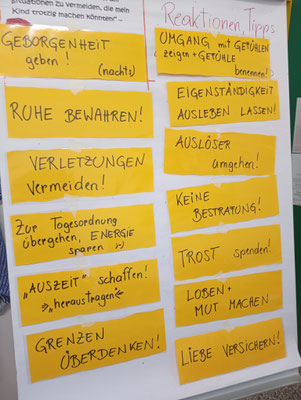 Situationen zu vermeiden, die mein
Kind trotzig machen könnten" ..
Reaktionen, Tipps
GEBORGENHEIT
geben! (nachts)
RUHE BEWAHREN!
VERLETZUNGEN
vermeiden!
Zur Tagesordnung
übergehen, ENERGIE
sparen ;-)
„AUSZEIT" schaffen!
"heraustragen"
GRENZEN
ÜBERDENKEN!
UMGANG mit GEFÜHLEN
zeigen + GEFÜHLE
benennen!
EIGENSTÄNDIGKEIT
AUSLEBEN LASSEN!
AUSLÖSER
umgehen!
KEINE
BESTRAFUNG!
TROST spenden!
LOBEN +
MUT MACHEN
LIEBE VERSICHERN!